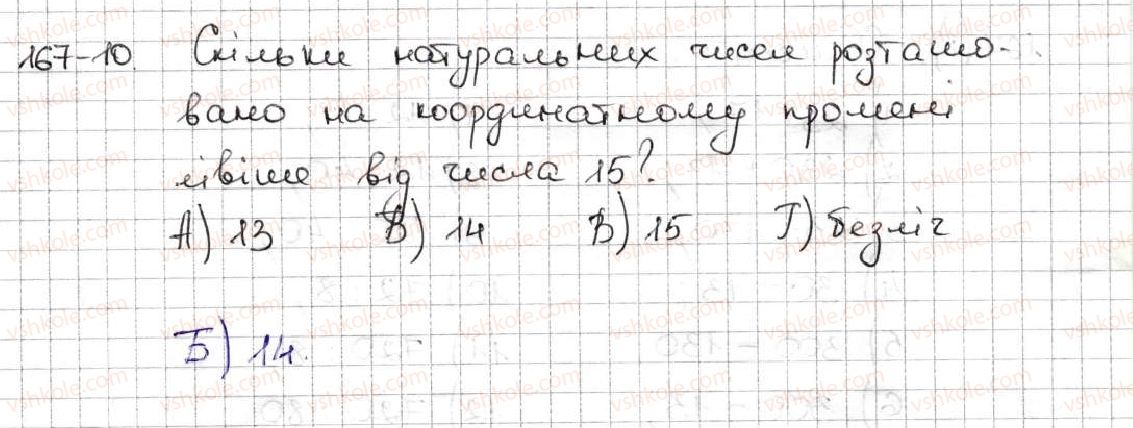 167-10. Скільки натуральних чисел розташо-
вано на координатному промені
лівіше від числа 15?
А) 13 Б) 14 В) 15 Г) безліч
Б) 14.